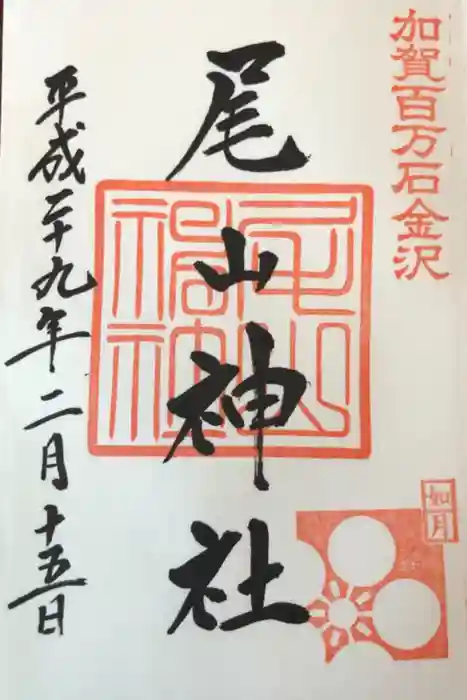 加賀百万石金沢
尾山神社
平成二十九年二月十五日
如月